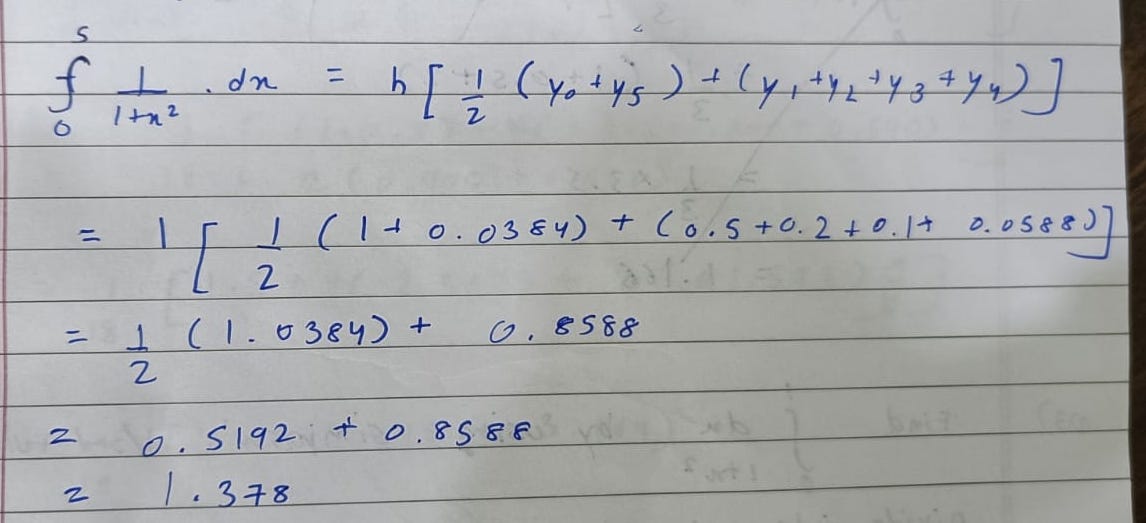 ∫₀⁵ 1/(1+x²) . dx = h [ 1/2 (y₀+y₅) + (y₁+y₂+y₃+y₄) ]
= 1 [ 1/2 (1+0.0384) + (0.5+0.2+0.1+0.0588) ]
= 1/2 (1.0384) + 0.8588
= 0.5192 + 0.8588
= 1.378